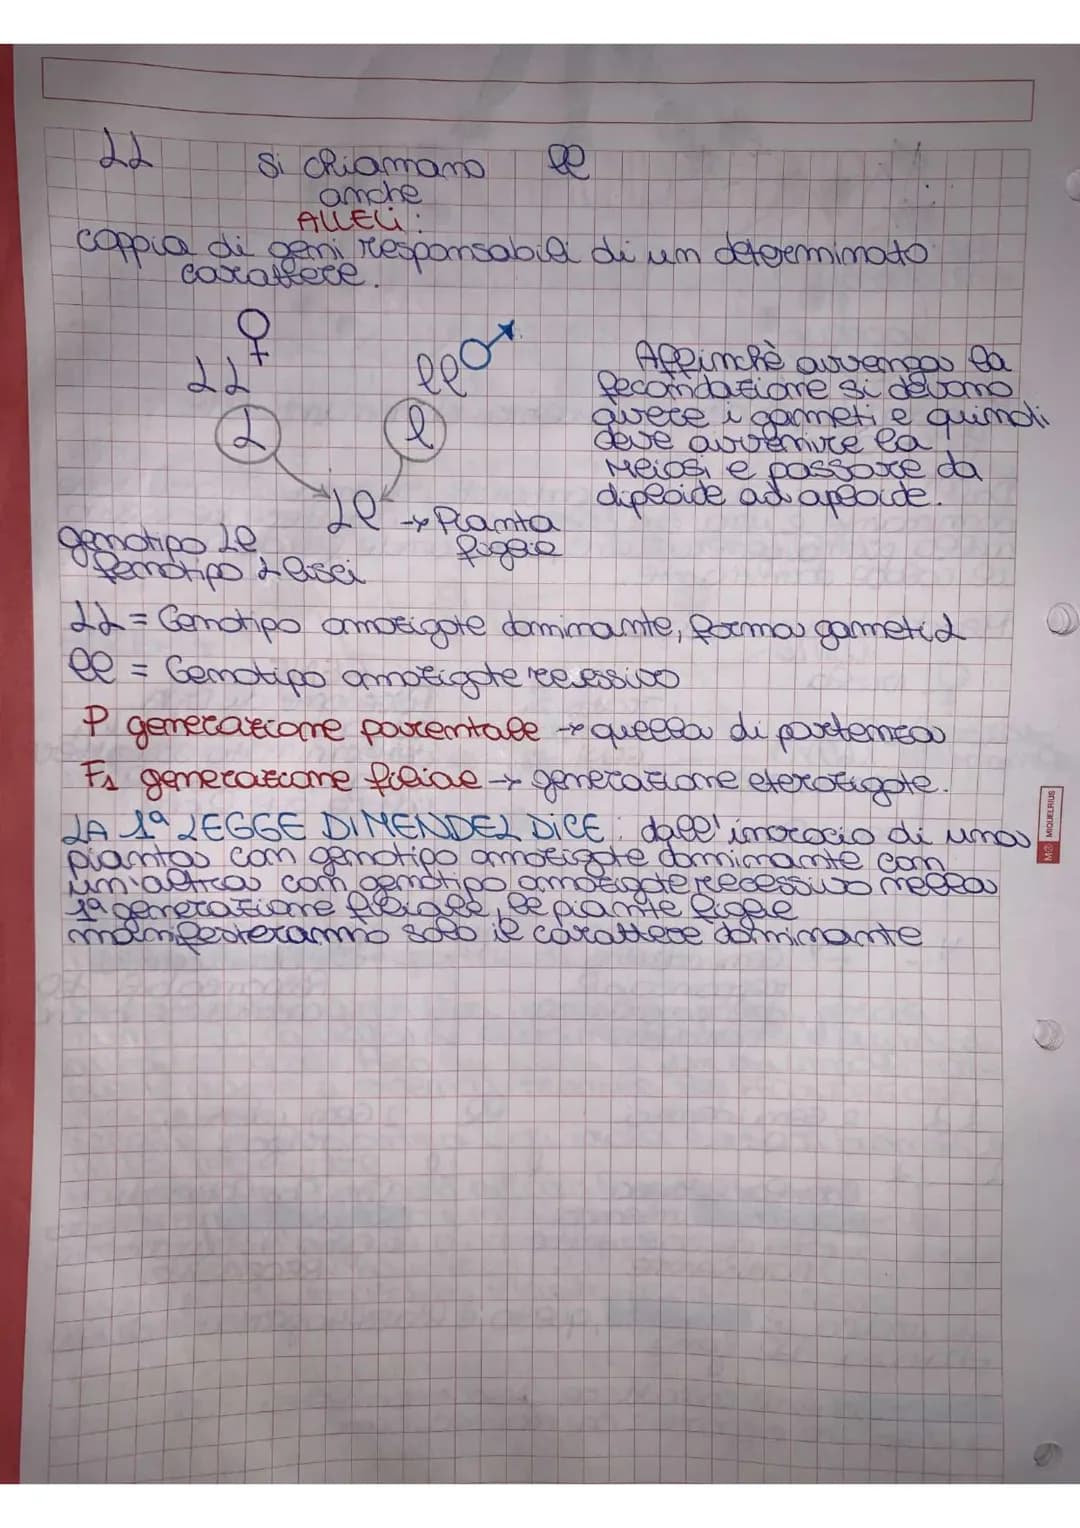 LL si chiamano ll
anche
ALLELI:
coppia di geni responsabili di un determinato
carattere.
♀ ♂
LL ll
L l
Ll → Pianta
figlia
Affinchè avvenga la
fecondazione si devono
avere i gameti e quindi
deve avvenire la
Meiosi e passare da
diploide ad aploide.
genotipo Ll
fenotipo Lisci
LL = Genotipo omozigote dominante, forma gameti L
ll = Genotipo omozigote recessivo
P generazione parentale → quella di partenza
F1 generazione filiale → generazione eterozigote.
LA 1ª LEGGE DI MENDEL DICE. dall'incrocio di una
pianta con genotipo omozigote dominante con
un'altra con genotipo omozigote recessivo nella
1ª generazione filiale, le piante figlie
manifesteranno solo il carattere dominante
MIQUELRIUS